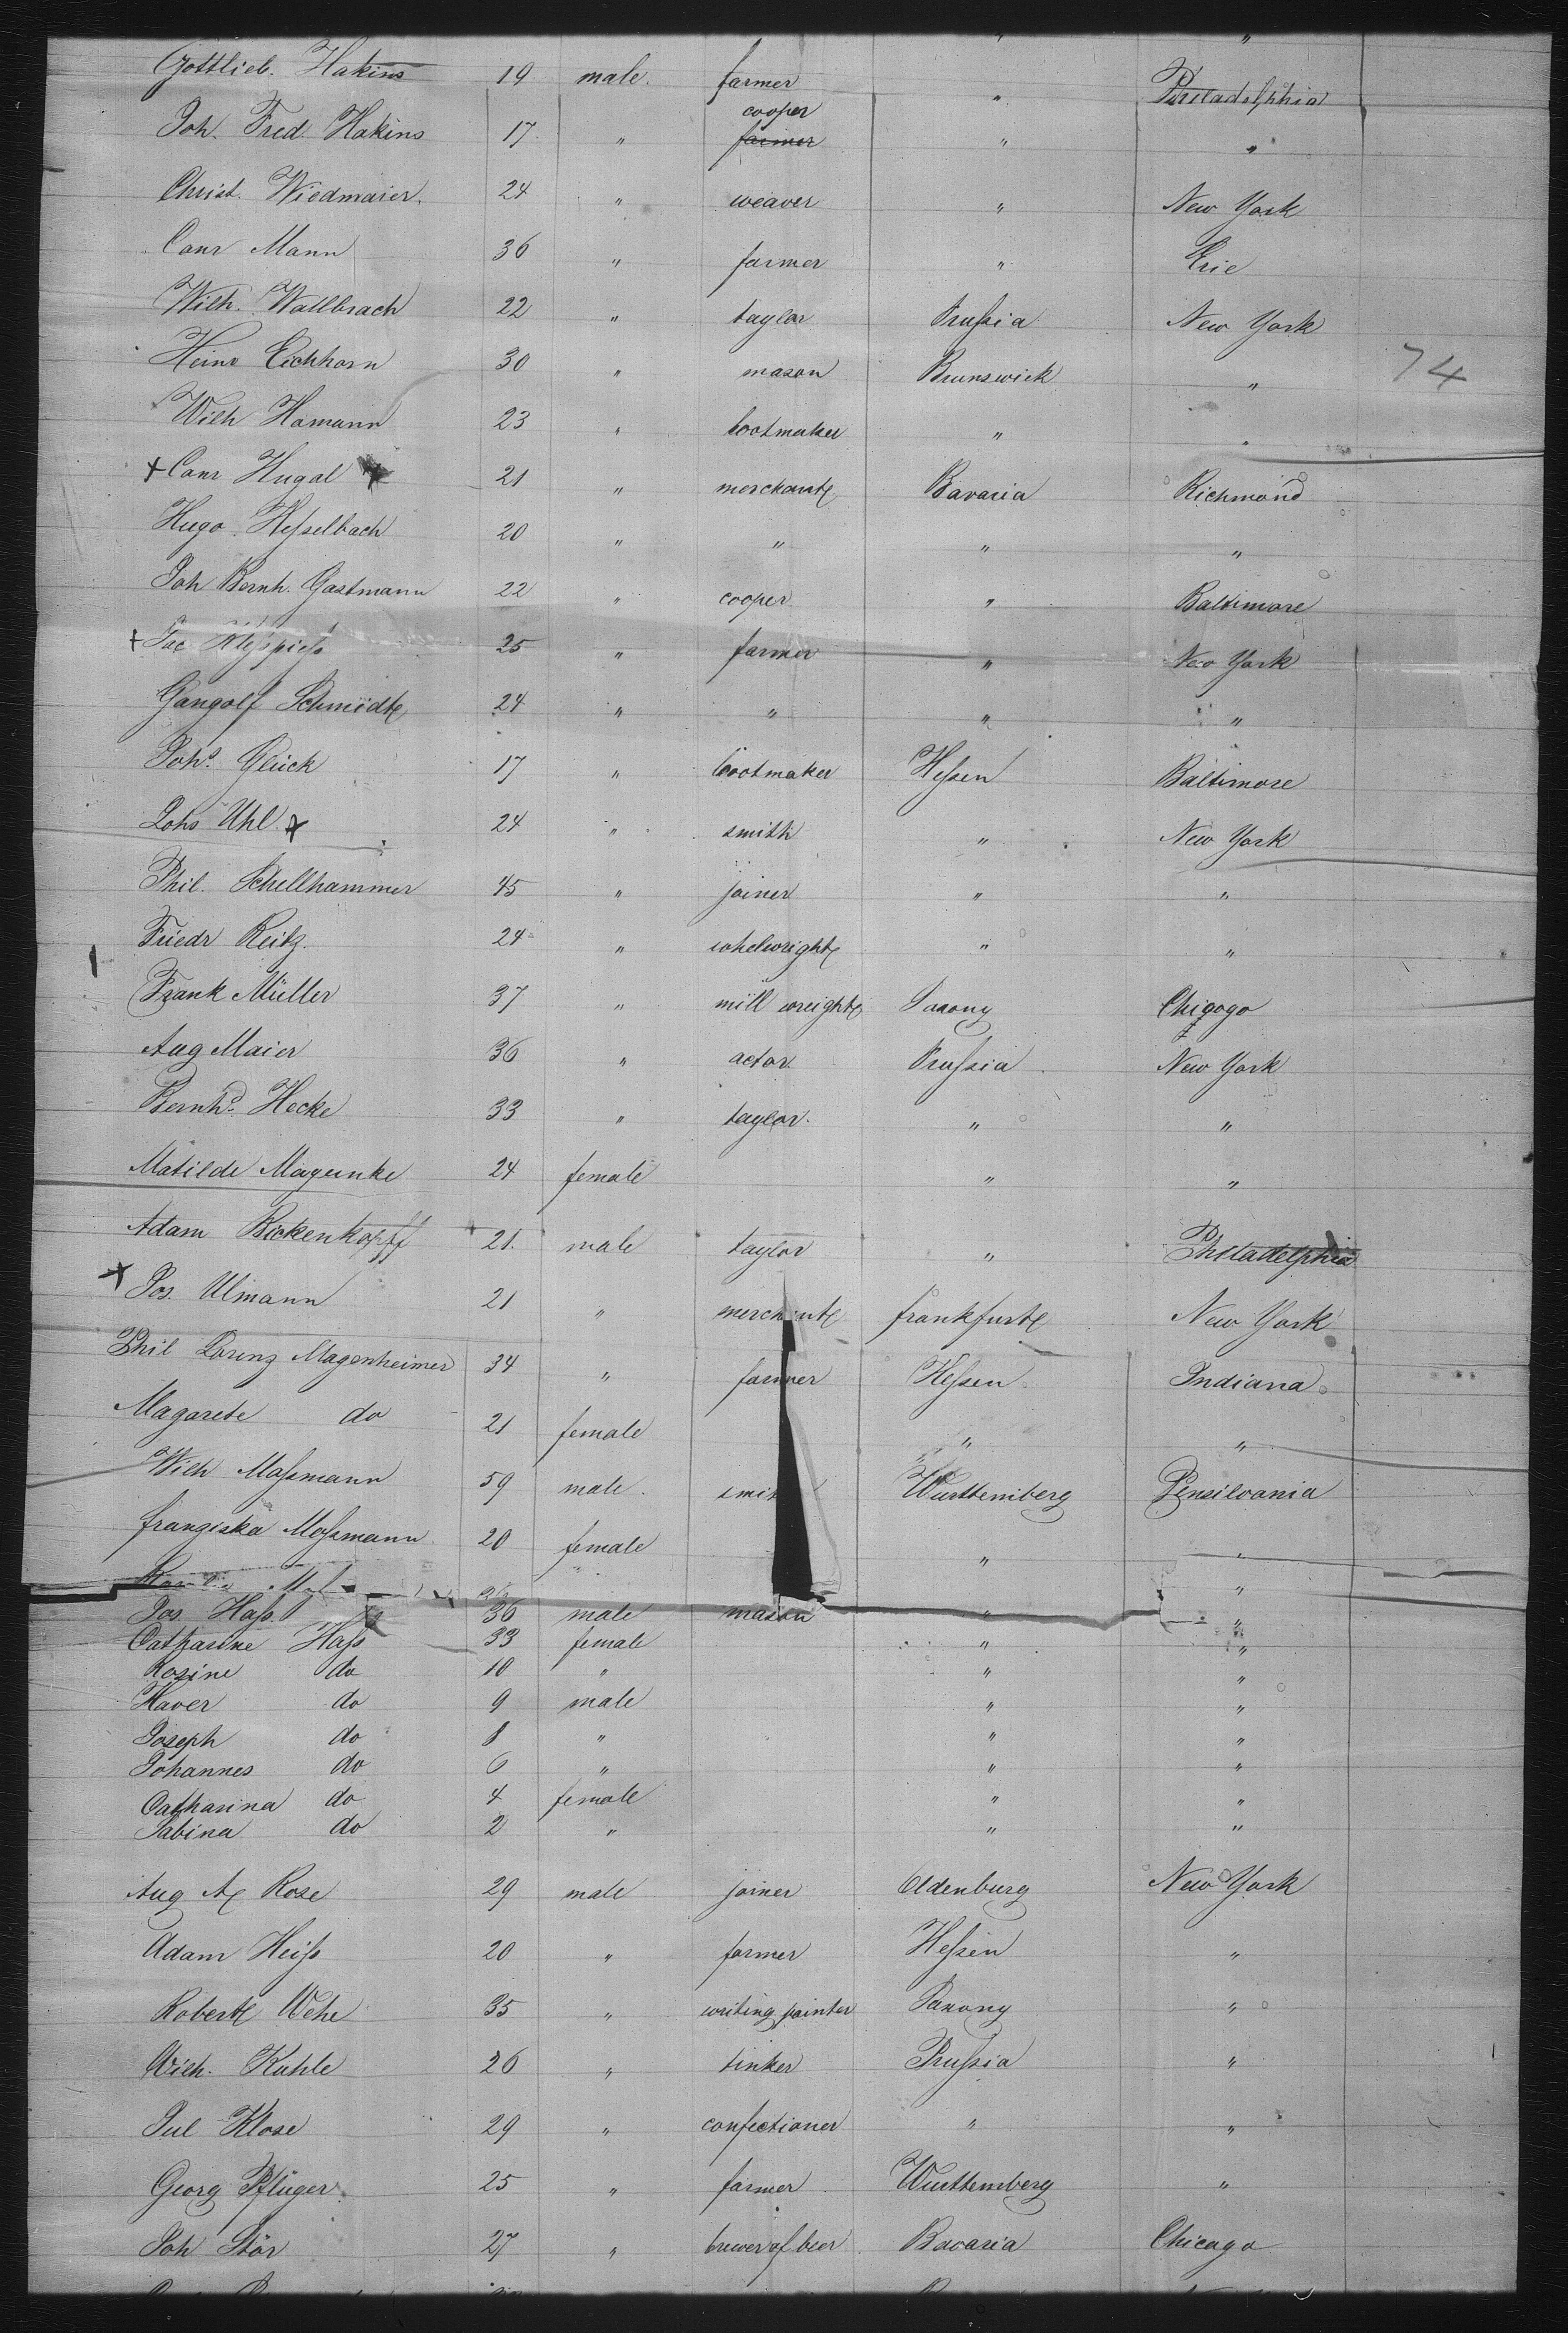 " "
Gottlieb. Hakins 19 male. farmer " Philadelphia
cooper
Joh. Fred Hakins 17 " farmer " "
Christ. Wiedmaier. 24 " weaver " New York
Conr Mann 36 " farmer " Erie
Wilh. Wallbrach 22 " taylor Prußia New York
Heinr Eichhorn 30 " mason Brunswick "
74
Wilh Hamann 23 " bootmaker " "
+ Conr Hugal 21 " merchant Bavaria Richmond
Hugo Heßelbach 20 " " " "
Joh Bernh. Gastmann 22 " cooper " Baltimore
+ Jac 25 " farmer " New York
Gangolf Schmidt 24 " " " "
Johs. Glück 17 " bootmaker Heßen Baltimore
Johs Uhl 24 " smith " New York
Phil. Schellhammer 45 " joiner " "
Friedr Reitz. 24 " whelwright " "
Frank Müller 37 " mill wreight Saxony Chigogo
Aug Maier 36 " actor Prußia New York
Bernhd. Hecke 33 " taylor. " "
Matilde Magunke 24 female " "
Adam Bickenkopff 21. male taylor " Philadelphia
+ Jos. Ulmann 21 " merchant frankfurt New York
Phil Lorenz Magenheimer 34 " farmer Heßen Indiana
Magarete do 21 female " "
Wilh Maßmann 59 male. smit Württemberg Pensilvania
franziska Maßmann 20 female " "
"
Jos Haß 36 male mason " "
Catharine Haß 33 female " "
Rosine do 10 " " "
Xaver do 9 male " "
Joseph do 8 " " "
Johannes do 6 " " "
Catharina do 4 female " "
Sabina do 2 " " "
Aug At Rose 29 male joiner Oldenburg New York
Adam Heiß 20 " farmer Heßen "
Robert Wehe 35 " writing painter Saxony "
Wilh. Kuhle 26 " tinker Prußia "
Jul Klose 29 " confectioner " "
Georg Pflüger. 25 " farmer Wurttemberg "
Joh Stör 27 " brewer of beer Bavaria Chicago